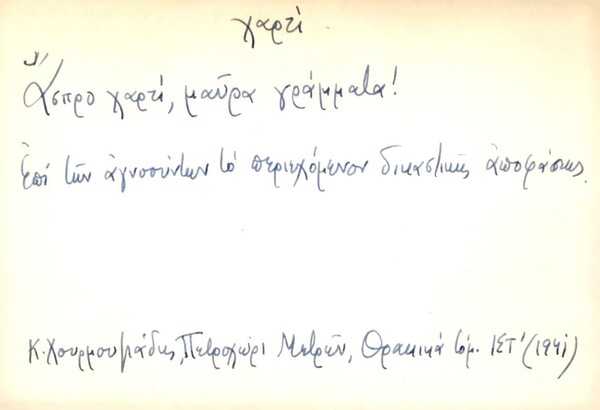 χαρτί
Ἄσπρο χαρτί, μαῦρα γράμματα!
Ἐπί τῶν ἀγνοούντων τό περιεχόμενον δικαστικῆς ἀποφάσεως.
Κ. Χουρμουζιάδης, Πετροχώρι Μετρῶν, Θρακικά τόμ. ΙΣΤ' (1941)